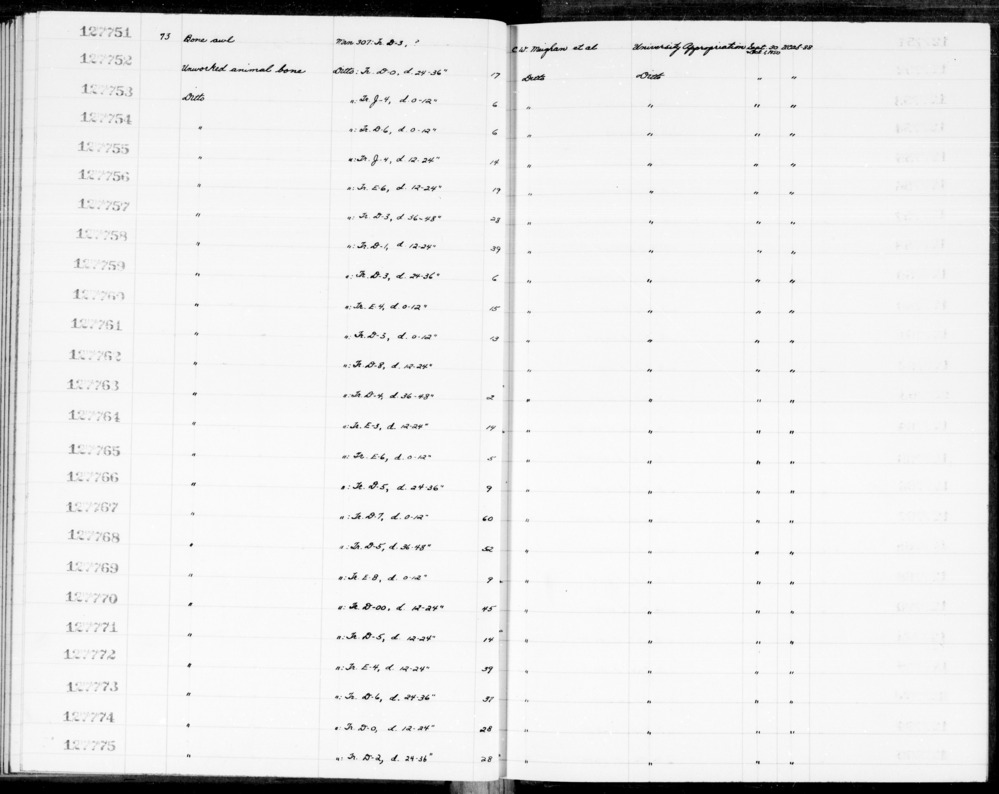 127751 73 Bone awl Mrn 307: Tr. D-3, ? C.W. Meighan et al University Appropriation Sept. 30 2025-58
127752 Unworked animal bone Ditto: Tr. D-0, d. 24-36" 17 Ditto Ditto " "
127753 Ditto ": Tr. J-4, d. 0-12" 6 " " " "
127754 " ": Tr. D-6, d. 0-12" 6 " " " "
127755 " ": Tr. J-4, d. 12-24" 14 " " " "
127756 " ": Tr. E-6, d. 12-24" 19 " " " "
127757 " ": Tr. D-3, d 36-48" 23 " " " "
127758 " ": Tr. D-1, d 12-24" 39 " " " "
127759 " ": Tr. D-3, d. 24-36" 6 " " " "
127760 " ": Tr. E-4, d. 0-12" 15 " " " "
127761 " ": Tr. D-3, d. 0-12" 13 " " " "
127762 " ": Tr. D-8, d. 12-24" " " " "
127763 " ": Tr. D-4, d. 36-48" 2 " " " "
127764 " ": Tr. E-3, d. 12-24" 14 " " " "
127765 " ": Tr. E-6, d. 0-12" 5 " " " "
127766 " ": Tr. D-5, d. 24-36" 9 " " " "
127767 " ": Tr. D-7, d. 0-12" 60 " " " "
127768 " ": Tr. D-5, d. 36-48" 52 " " " "
127769 " ": Tr. E-8, d. 0-12" 9 " " " "
127770 " ": Tr. D-00, d. 12-24" 45 " " " "
127771 " ": Tr. D-5, d. 12-24" 14 " " " "
127772 " ": Tr. E-4, d. 12-24" 39 " " " "
127773 " ": Tr. D-6, d. 24-36" 37 " " " "
127774 " ": Tr. D-0, d. 12-24" 28 " " " "
127775 " ": Tr. D-2, d. 24-36" 28 " " " "